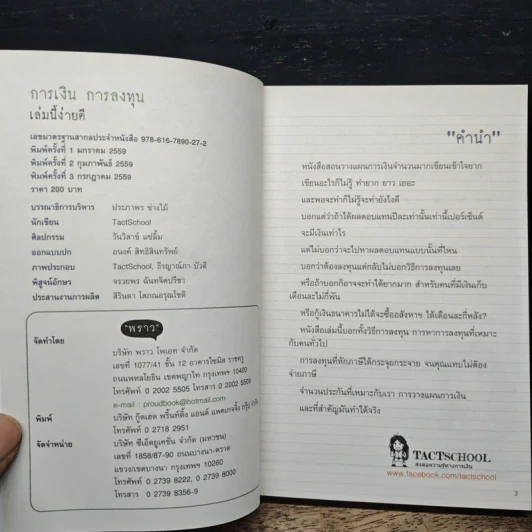 การเงิน การลงทุน
เล่มนี้ง่ายดี
เลขมาตรฐานสากลประจำหนังสือ 978-616-7890-27-2
พิมพ์ครั้งที่ 1 มกราคม 2559
พิมพ์ครั้งที่ 2 กุมภาพันธ์ 2559
พิมพ์ครั้งที่ 3 กรกฎาคม 2559
ราคา 200 บาท
บรรณาธิการบริหาร ประภาพร ช่างไม้
นักเขียน TactSchool
ศิลปกรรม วันวิสาข์ แซ่ลิ้ม
ออกแบบปก อนงค์ สิทธิสินทรัพย์
ภาพประกอบ TactSchool, ธีรญาณ์ภา บัวดี
พิสูจน์อักษร จรวยพร ฉันทจิตปรีชา
ประสานงานการผลิต สิรินดา โสภณอรุณโชติ
"พราว"
จัดทำโดย
บริษัท พราว โพเอท จำกัด
เลขที่ 1077/41 ชั้น 12 อาคารไซมิส ราชครู
ถนนพหลโยธิน เขตพญาไท กรุงเทพฯ 10400
โทรศัพท์ 0 2002 5505 โทรสาร 0 2002 5509
e-mail : proudbook@hotmail.com
พิมพ์ บริษัท กู๊ดเฮด พริ้นท์ติ้ง แอนด์ แพคเกจจิ้ง กรุ๊ป จำกัด
โทรศัพท์ 0 2718 2951
จัดจำหน่าย บริษัท ซีเอ็ดยูเคชั่น จำกัด (มหาชน)
เลขที่ 1858/87-90 ถนนบางนา-ตราด
แขวง/เขตบางนา กรุงเทพฯ 10260
โทรศัพท์ 0 2739 8222, 0 2739 8000
โทรสาร 0 2739 8356-9
"คำนำ"
หนังสือสอนวางแผนการเงินจำนวนมากเขียนเข้าใจยาก
เขียนอะไรก็ไม่รู้ ทำยาก ยาว เยอะ
และพอจะทำก็ไม่รู้จะทำยังไงดี
บอกแต่ว่าถ้าได้ผลตอบแทนปีละเท่านั้นเท่านี้เปอร์เซ็นต์
จะมีเงินเท่าไร
แต่ไม่บอกว่าจะไปหาผลตอบแทนแบบนั้นที่ไหน
บอกว่าต้องลงทุนแต่กลับไม่บอกวิธีการลงทุนเลย
หรือถ้าบอกก็อาจจะทำได้ยากมาก สำหรับคนที่มีเงินเก็บ
เดือนละไม่กี่พัน
หรือกู้เงินธนาคารไม่ได้จะซื้ออสังหาฯ ได้เดือนละกี่หลัง?
หนังสือเล่มนี้บอกทั้งวิธีการลงทุน การหาการลงทุนที่เหมาะ
กับคนทั่วไป
การลงทุนที่พักภาษีได้กระจุยกระจาย จนคุณแทบไม่ต้อง
จ่ายภาษี
จำนวนประกันที่เหมาะกับเรา การวางแผนการเงิน
และที่สำคัญมันทำได้จริง
TACTSCHOOL
ส่งต่อความรู้ทางการเงิน
www.facebook.com/tactschool
3